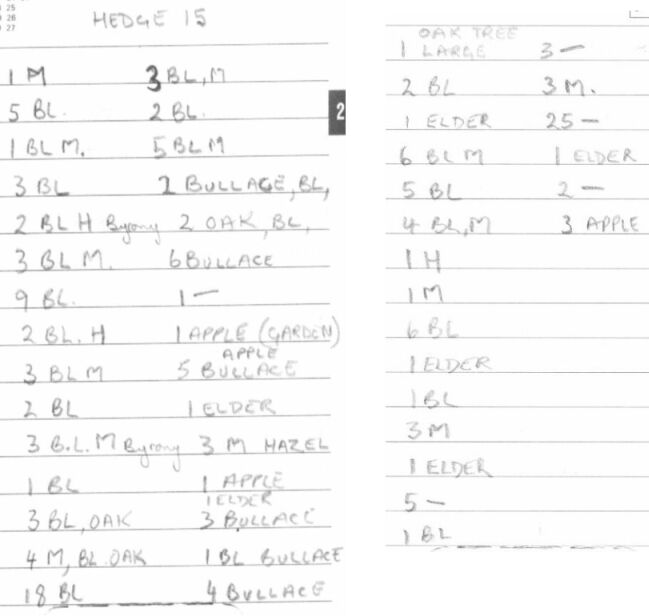 HEDGE 15
1 M
5 BL.
1 BL M.
3 BL
2 BL H Byrony
3 BL M.
9 BL.
2 BL. H
3 BL M
2 BL
3 B.L. M Byrony
1 BL
3 BL, OAK
4 M, BL. OAK
18 BL
3 BL, M
2 BL.
5 BL M
2 BULLACE, BL,
2 OAK, BL,
6 BULLACE
1 —
1 APPLE (GARDEN)
APPLE
5 BULLACE
1 ELDER
3 M HAZEL
1 APPLE
1 ELDER
3 BULLACE
1 BL BULLACE
4 BULLACE
2
OAK TREE
1 LARGE
2 BL
1 ELDER
6 BL M
5 BL
4 BL, M
1 H
1 M
6 BL
1 ELDER
1 BL
3 M
1 ELDER
5 —
1 BL
3 —
3 M.
25 —
1 ELDER
2 —
3 APPLE
25
26
27